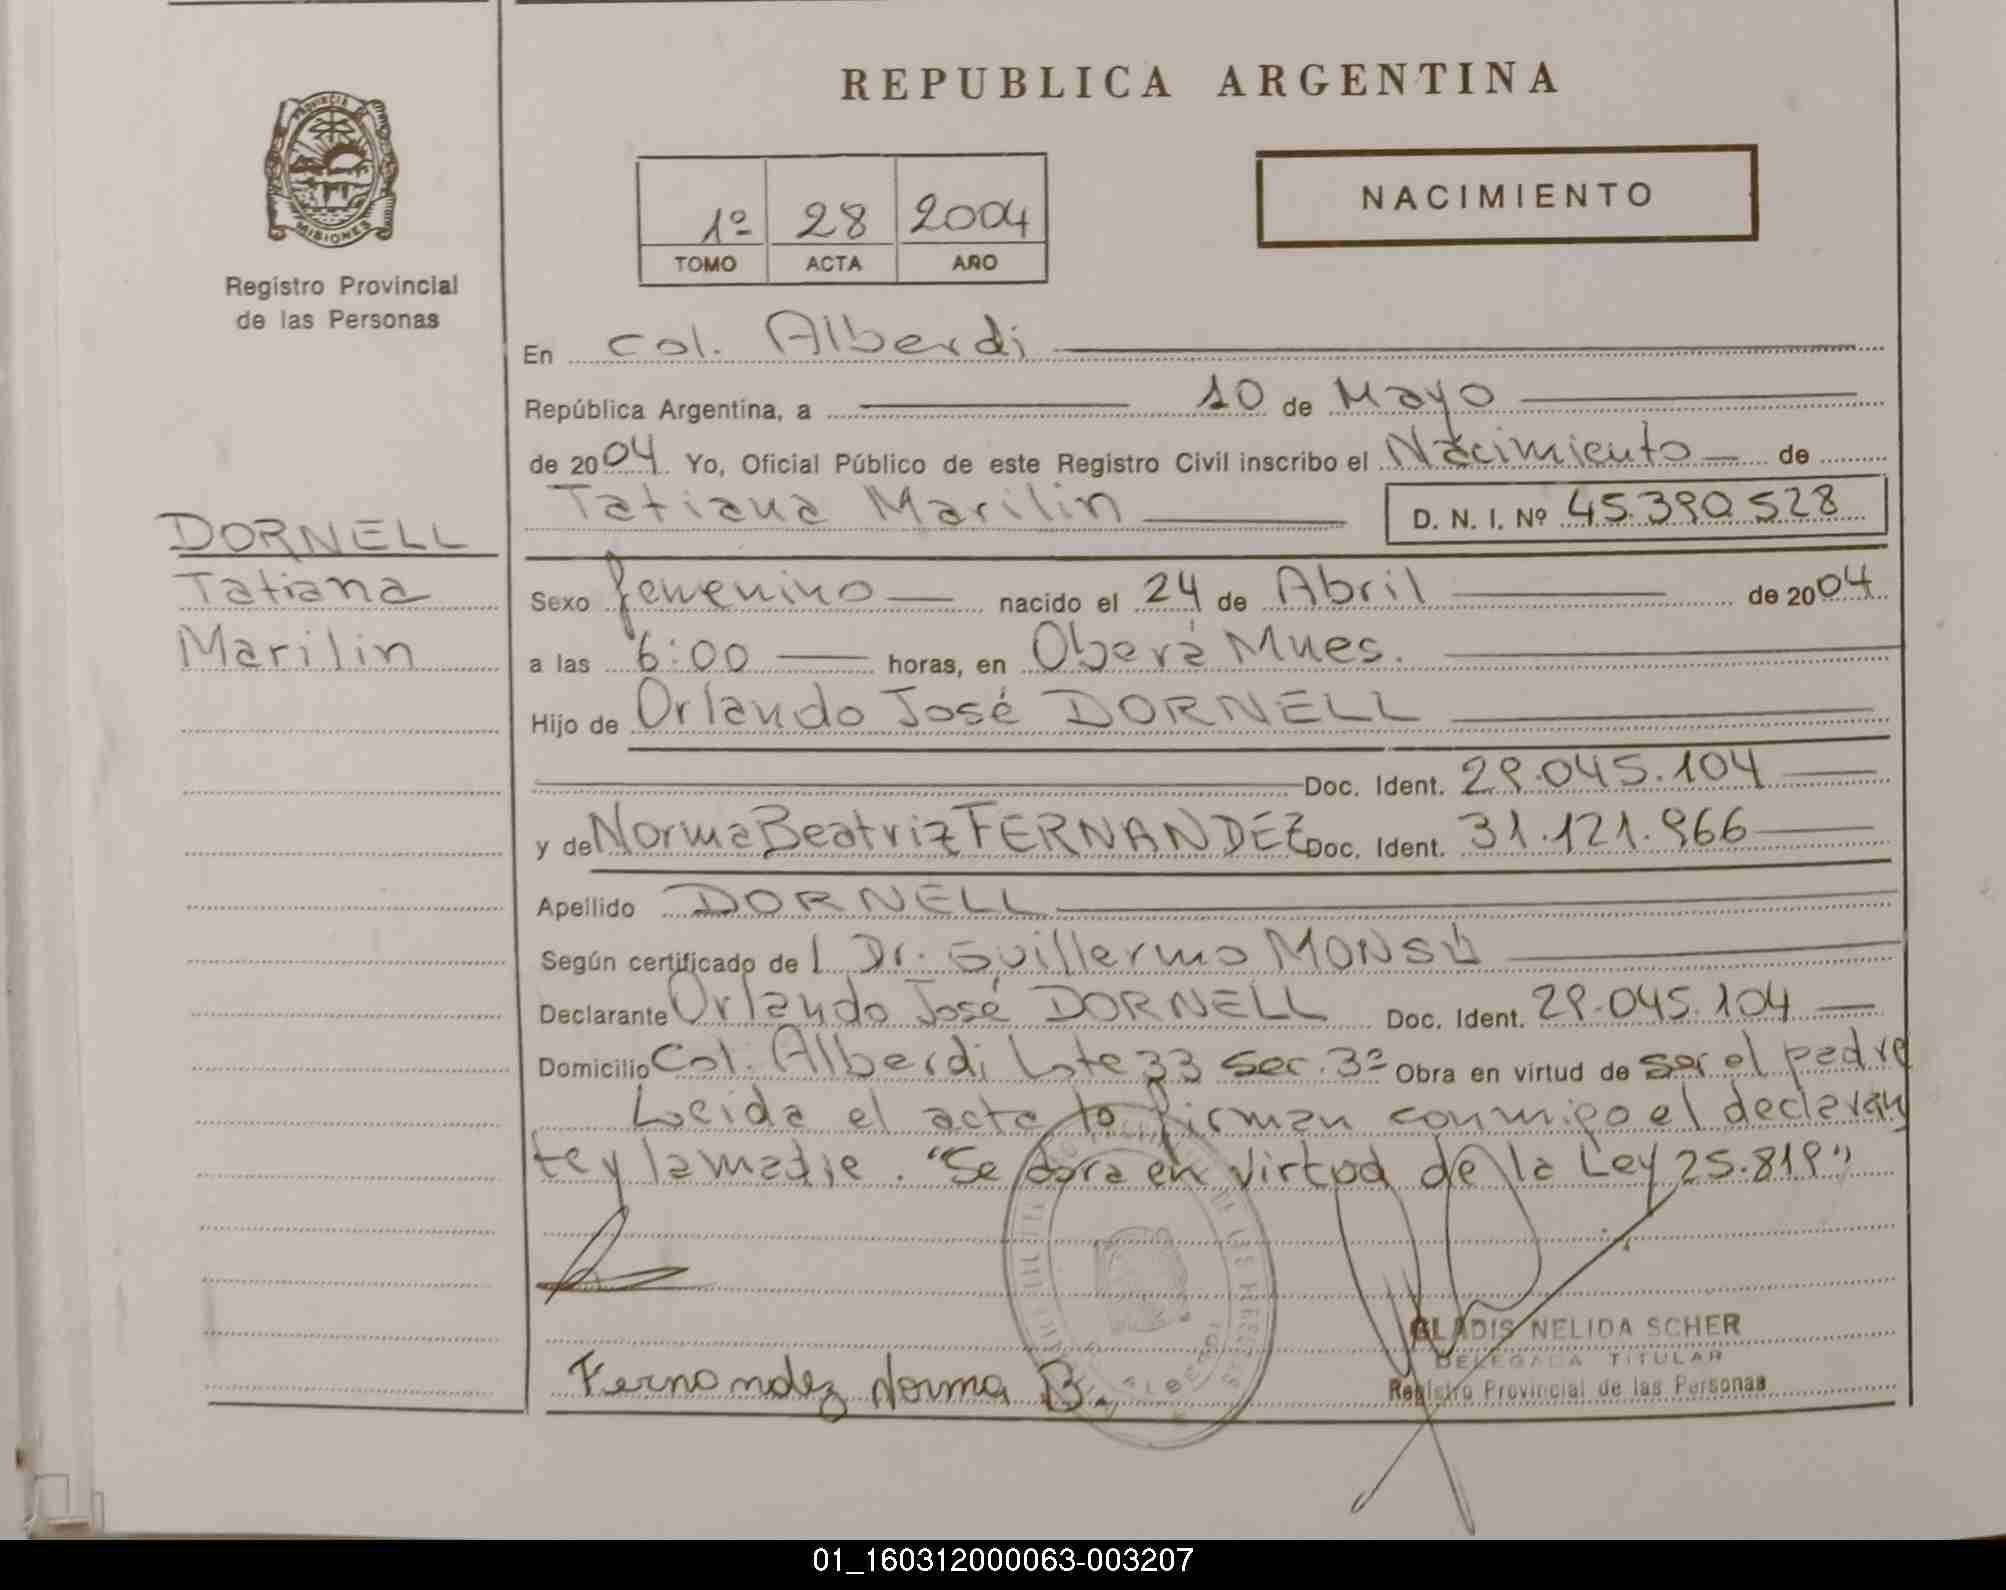 PROVINCIA
MISIONES
Registro Provincial
de las Personas
DORNELL
Tatiana
Marilin
REPUBLICA ARGENTINA
1º 28 2004
TOMO ACTA AÑO
NACIMIENTO
En Col. Alberdi
República Argentina, a 10 de Mayo
de 2004. Yo, Oficial Público de este Registro Civil inscribo el Nacimiento de
Tatiana Marilin D. N. I. Nº 45.390.528
Sexo femenino nacido el 24 de Abril de 2004
a las 6:00 horas, en Oberá Mnes.
Hijo de Orlando José DORNELL
Doc. Ident. 29.045.104
y de Norma Beatriz FERNANDEZ Doc. Ident. 31.121.966
Apellido DORNELL
Según certificado del Dr. Guillermo MONSÚ
Declarante Orlando José DORNELL Doc. Ident. 29.045.104
Domicilio Col. Alberdi Lote 33 Sec. 3ª Obra en virtud de ser el padre
Leida el acta lo firman conmigo el declaran
te y la madre. "Se obra en virtud de la Ley 25.819"
GLADIS NELIDA SCHER
DELEGADA TITULAR
Registro Provincial de las Personas
Fernandez Norma B.
01_160312000063-003207